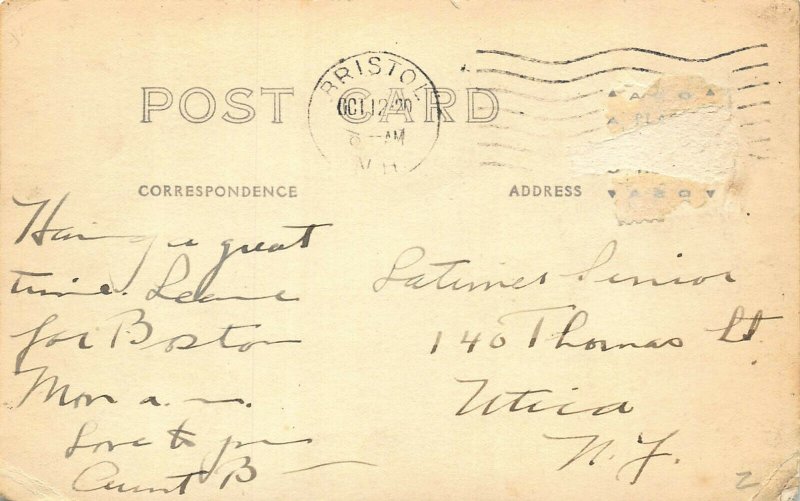 POST CARD
BRISTOL
OCT 12 20
AM
CORRESPONDENCE
ADDRESS
AZO
Having a great
time. Leave
for Boston
Mon a.m.
Love to you
Aunt B
Latimer Senior
140 Thomas St
Utica
N.Y.
2